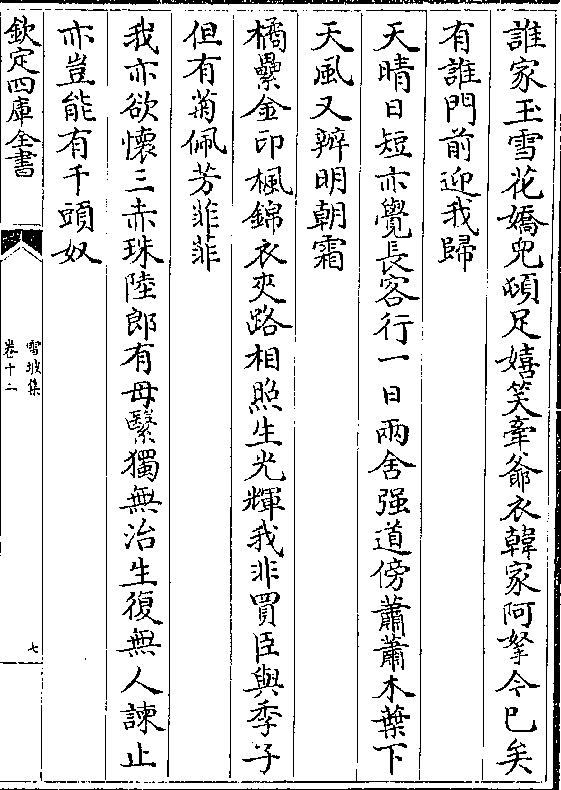 誰家玉雪花嬌兒頓足嬉笑牽爺衣韓家阿拏今已矣
有誰門前迎我歸
天晴日短亦覺長客行一日兩舍强道傍蕭蕭木葉下
天風又辨明朝霜
橘纍金印楓錦衣夾路相照生光輝我非買臣與季子
但有菊佩芳菲菲
我亦欲懷三赤珠陸郎有母繄獨無治生復無人諫止
亦豈能有千頭奴
欽定四庫全書
雪坡集
卷十二
七